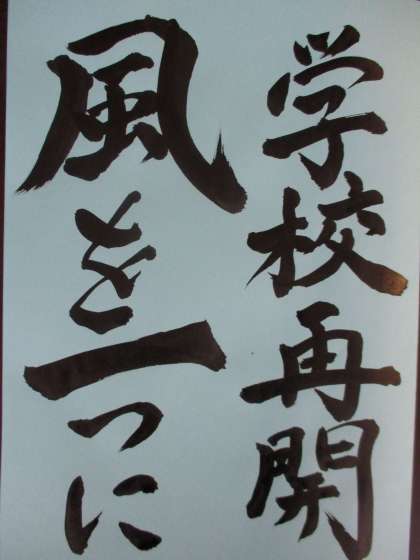 学校再開
風を一つに